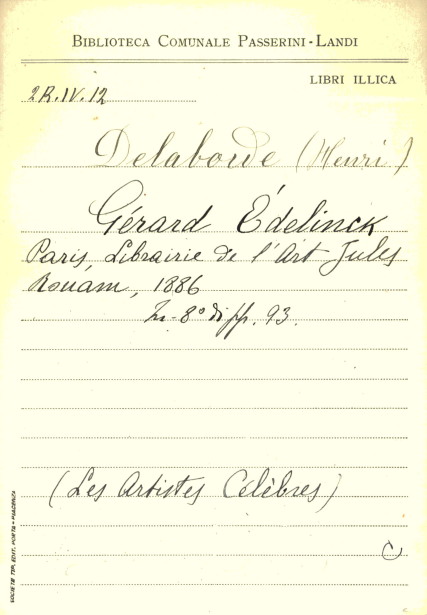 BIBLIOTECA COMUNALE PASSERINI-LANDI
LIBRI ILLICA
2R.IV.12
Delaborde (Henri)
Gérard Édelinck
Paris, Librairie de l'Art Jules
Rouam, 1886
In-8° di pp. 93.
(Les Artistes Célèbres)
C
SOCIETÀ TIP. EDIT. PORTA - PIACENZA